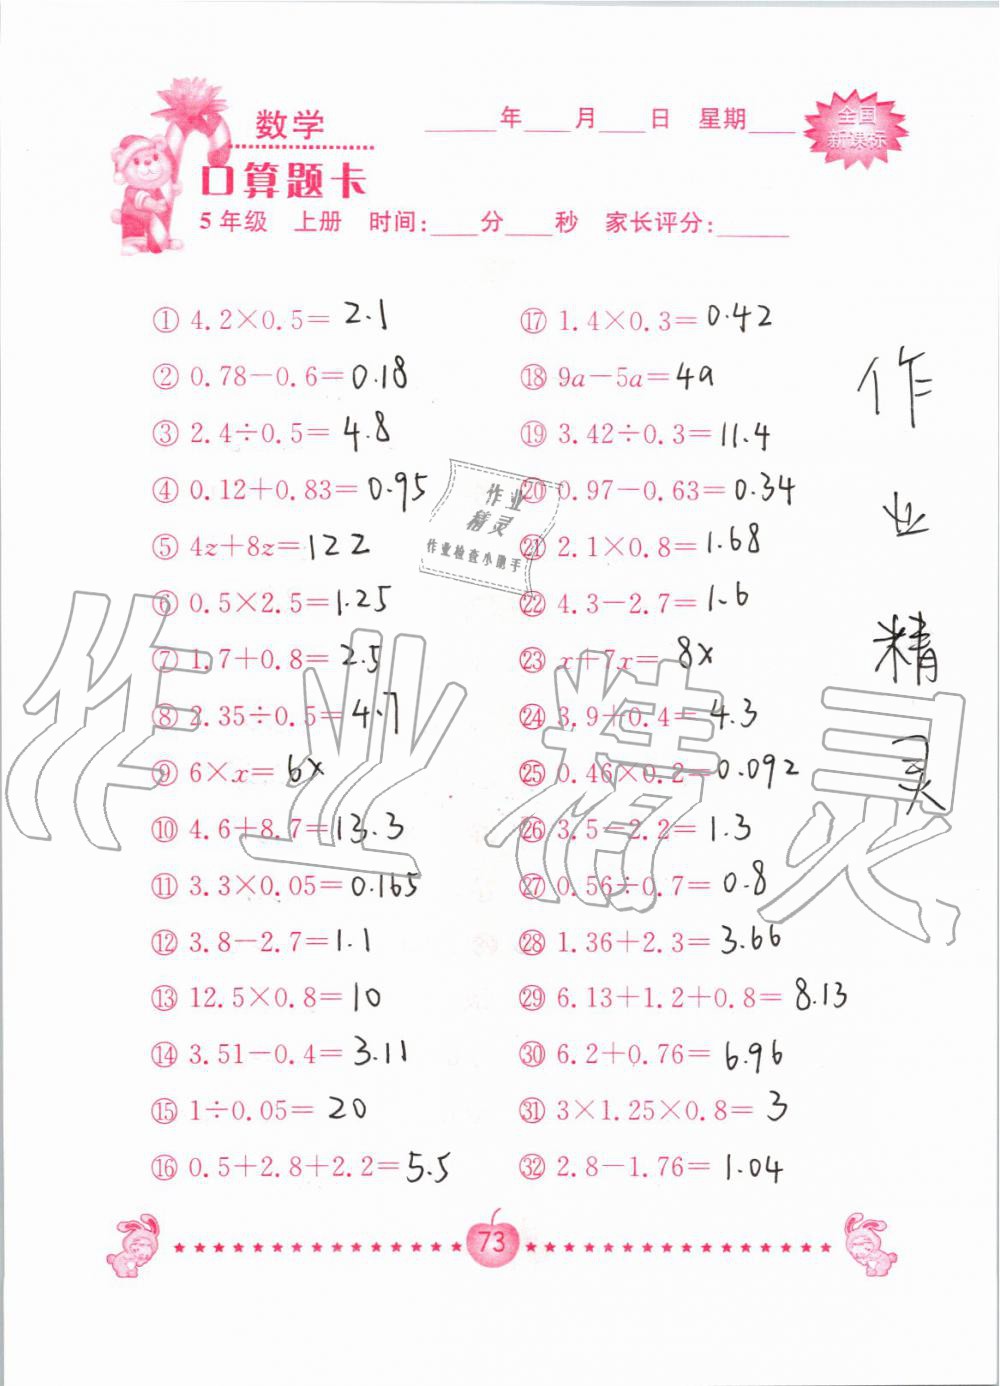 数学
____年____月____日 星期____
全国
新课标
口算题卡
5年级 上册 时间:____分____秒 家长评分:______
① 4.2×0.5= 2.1
② 0.78-0.6= 0.18
③ 2.4÷0.5= 4.8
④ 0.12+0.83= 0.95
⑤ 4z+8z= 12z
⑥ 0.5×2.5= 1.25
⑦ 1.7+0.8= 2.5
⑧ 2.35÷0.5= 4.7
⑨ 6×x= 6x
⑩ 4.6+8.7= 13.3
⑪ 3.3×0.05= 0.165
⑫ 3.8-2.7= 1.1
⑬ 12.5×0.8= 10
⑭ 3.51-0.4= 3.11
⑮ 1÷0.05= 20
⑯ 0.5+2.8+2.2= 5.5
⑰ 1.4×0.3= 0.42
⑱ 9a-5a= 4a
⑲ 3.42÷0.3= 11.4
⑳ 0.97-0.63= 0.34
㉑ 2.1×0.8= 1.68
㉒ 4.3-2.7= 1.6
㉓ x+7x= 8x
㉔ 3.9+0.4= 4.3
㉕ 0.46×0.2= 0.092
㉖ 3.5-2.2= 1.3
㉗ 0.56÷0.7= 0.8
㉘ 1.36+2.3= 3.66
㉙ 6.13+1.2+0.8= 8.13
㉚ 6.2+0.76= 6.96
㉛ 3×1.25×0.8= 3
㉜ 2.8-1.76= 1.04
作
业
精
灵
作业
精灵
作业检查小助手
作业精灵
73